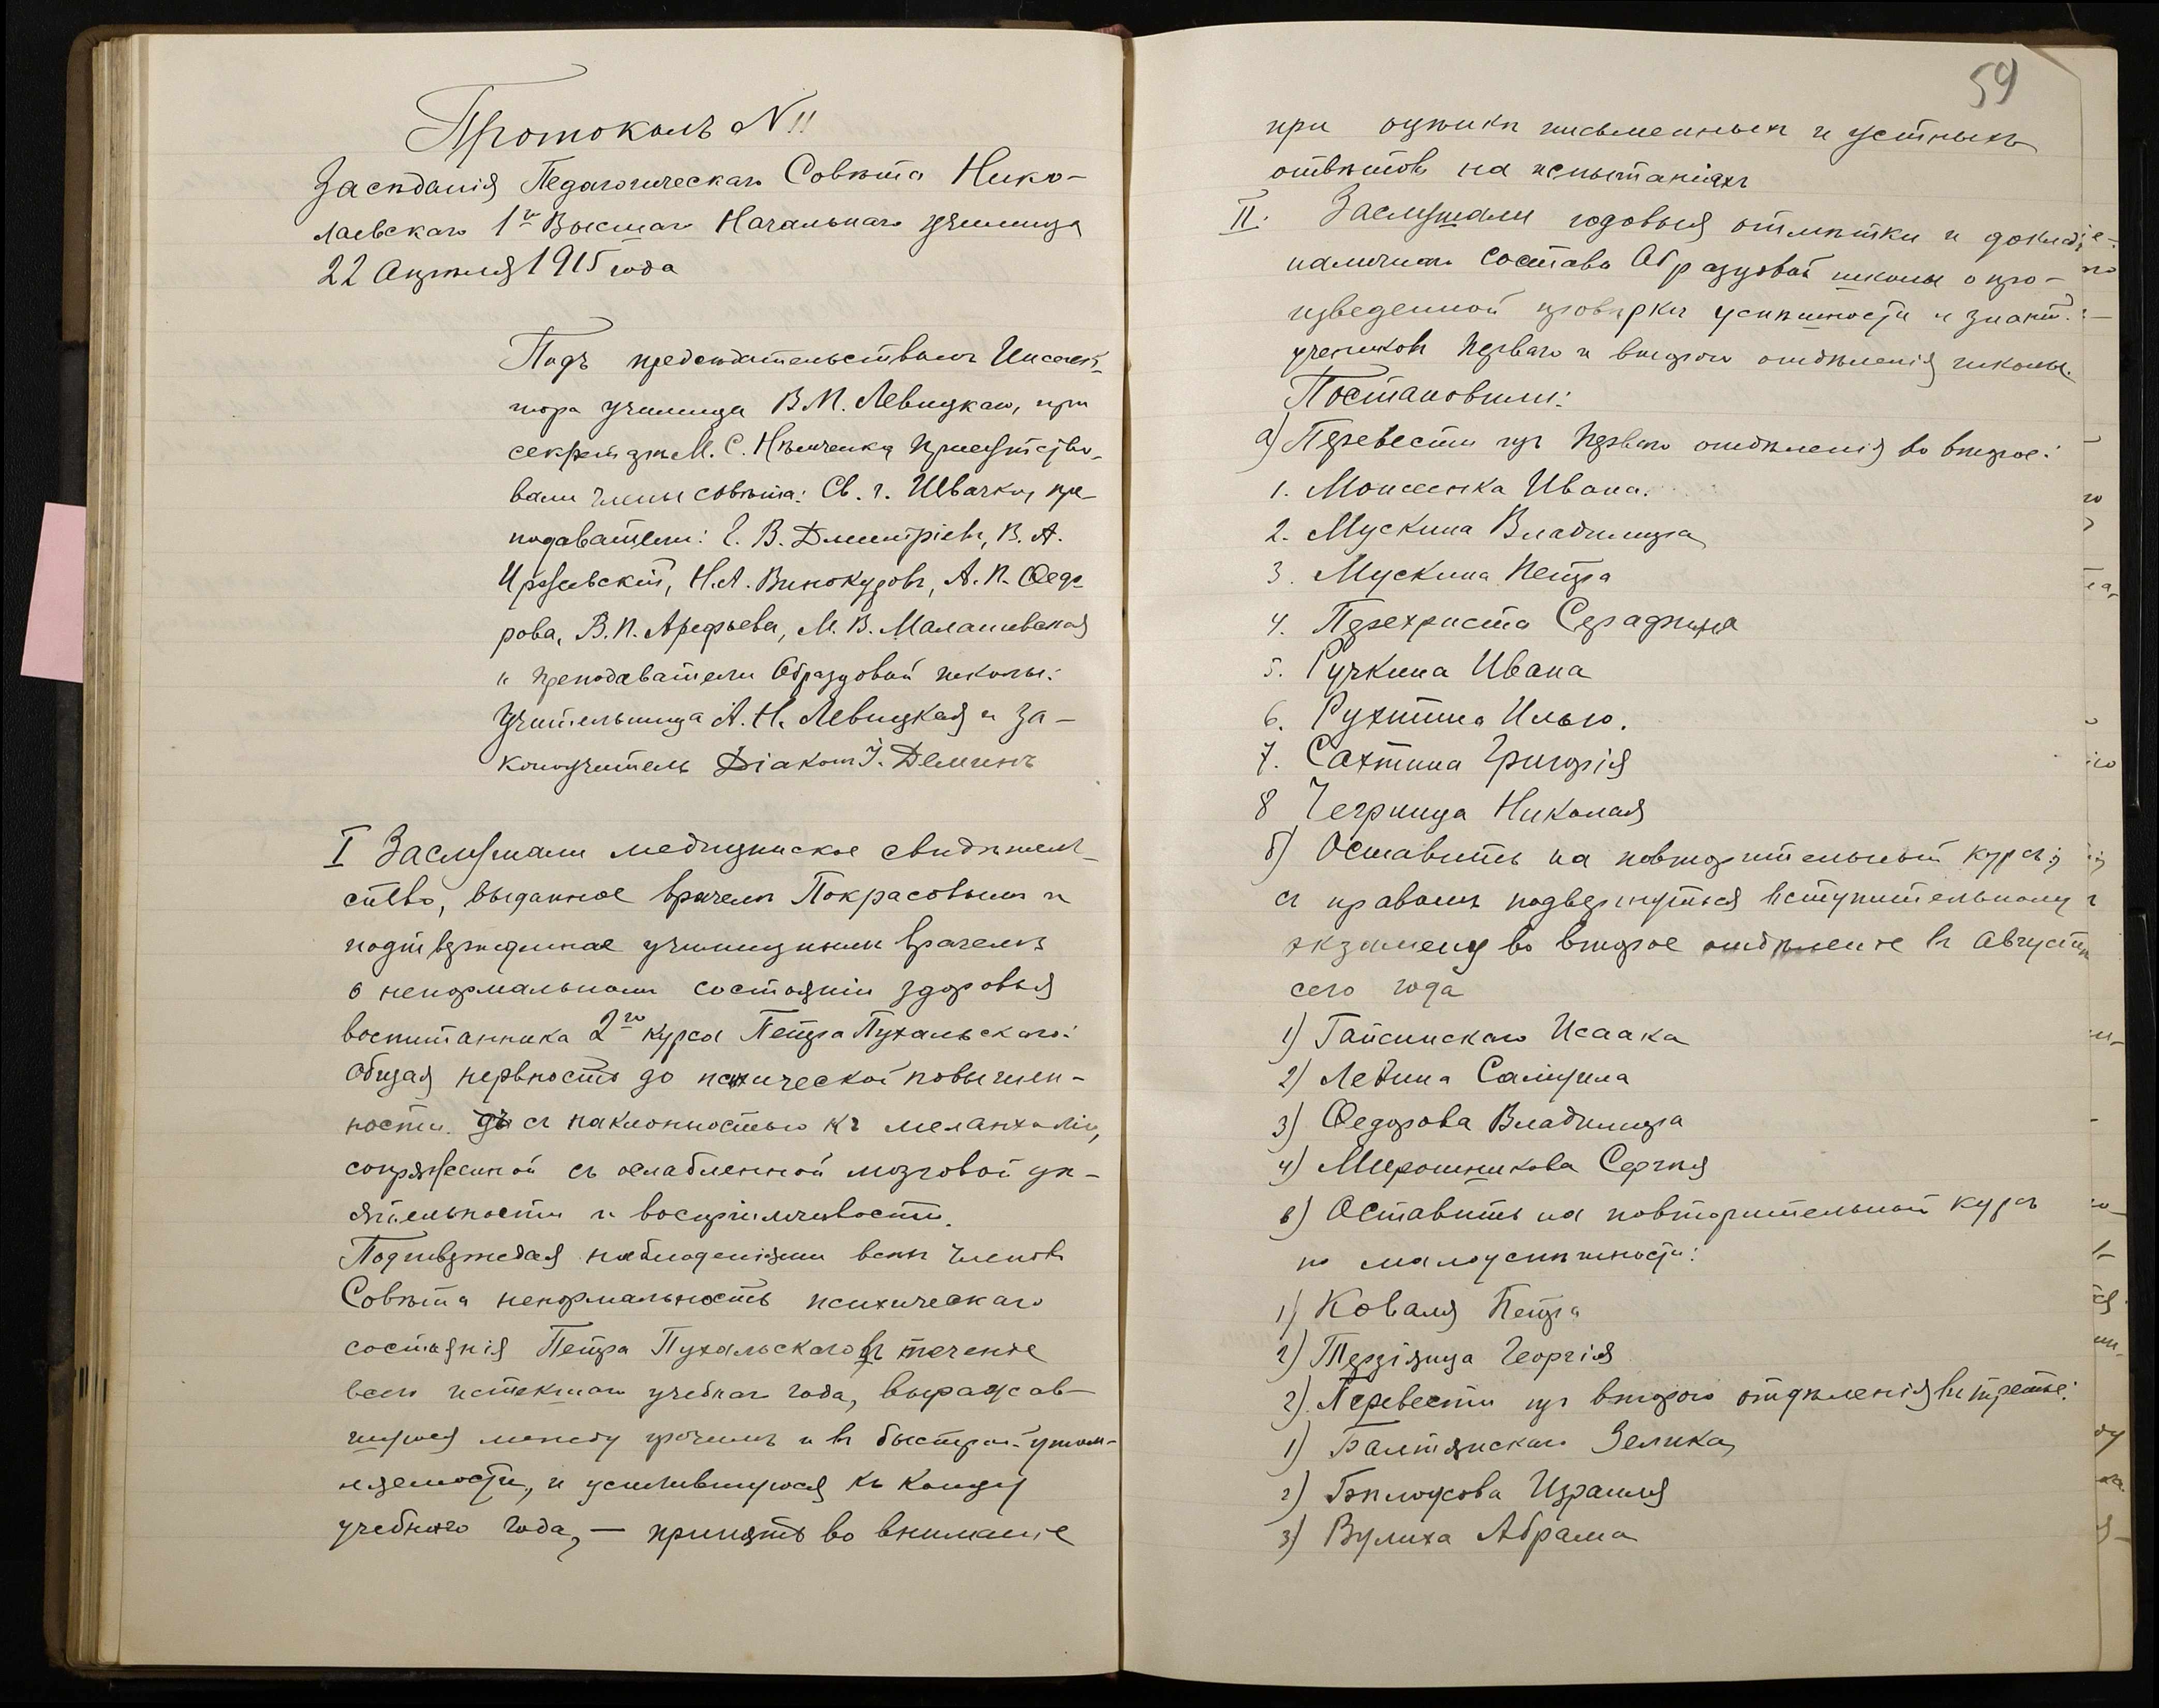 Протоколъ N 11
Засѣданія Педагогическаго Совѣта Нико-
лаевскаго 1го Высшаго Начальнаго училища
22 Апрѣля 1915 года
Подъ предсѣдательствомъ Инспек-
тора училища В. М. Левицкаго, при
секретарѣ М. С. Нѣмченкѣ присутство-
вали члены совѣта: Св. г. Швачко, пре-
подаватели: В. Дмитріевъ, В. А.
Иржевскій, Н. А. Винокуровъ, А. П. Ѳедо-
рова, В. П. Арефьева, М. В. Малашевская
и преподаватели Образцовой школы:
учительница А. Н. Левицкая и за-
коноучитель Діаконъ І. Деминъ
I Заслушали медицинское свидѣтель-
ство, выданное врачемъ Покрасовымъ и
подтвержденное училищнымъ врачемъ
о ненормальномъ состояніи здоровья
воспитанника 2го курса Петра Пухальскаго:
общая нервность до психической повышен-
ности съ наклонностью къ меланхоліи,
сопряженной съ ослабленной мозговой дѣ-
ятельности и воспріимчивости.
Подтверждая наблюденіями всѣхъ членовъ
Совѣта ненормальность психическаго
состоянія Петра Пухальскаго въ теченіе
всего истекшаго учебнаго года, выражав-
шуюся между прочимъ и въ быстрой утом-
ляемости, и усилившуюся къ концу
учебнаго года, — принять во вниманіе
59
при оцѣнкѣ письменныхъ и устныхъ
отвѣтовъ на испытаніяхъ
II. Заслушали годовыя отмѣтки и докладъ
наличнаго состава Образцовой школы о про-
изведенной провѣркѣ успѣшности и знаній
учениковъ перваго и второго отдѣленія школы.
Постановили:
а) Перевести изъ перваго отдѣленія во второе:
1. Моисеенка Ивана.
2. Мускина Владимира
3. Мускина Петра
4. Перехриста Серафима
5. Ручкина Ивана
6. Рухтина Илью.
7. Сахтина Григорія
8 Чегринца Николая
б) Оставить на повторительный курсъ
съ правомъ подвергнуться вступительному
экзамену во второе отдѣленіе въ Августѣ
сего года
1) Гайсинскаго Исаака
2) Ледина Самуила
3) Ѳедорова Владимира
4) Мирошникова Сергѣя
в) Оставить на повторительный курсъ
по малоуспѣшности:
1) Коваля Петра
2) Терзіянца Георгія
г) Перевести изъ второго отдѣленія въ третье:
1) Балтянскаго Зелика
2) Бѣлоусова Израиля
3) Вулиха Абрама